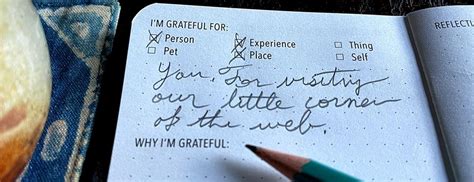 I'M GRATEFUL FOR:
Person Experience Thing
Pet Place Self
You. For visiting
our little corner
of the web.
WHY I'M GRATEFUL:
REFLECTI